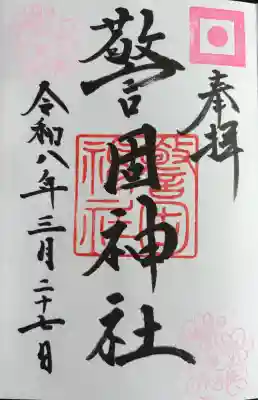 奉拝
警固神社
令和八年三月二十七日